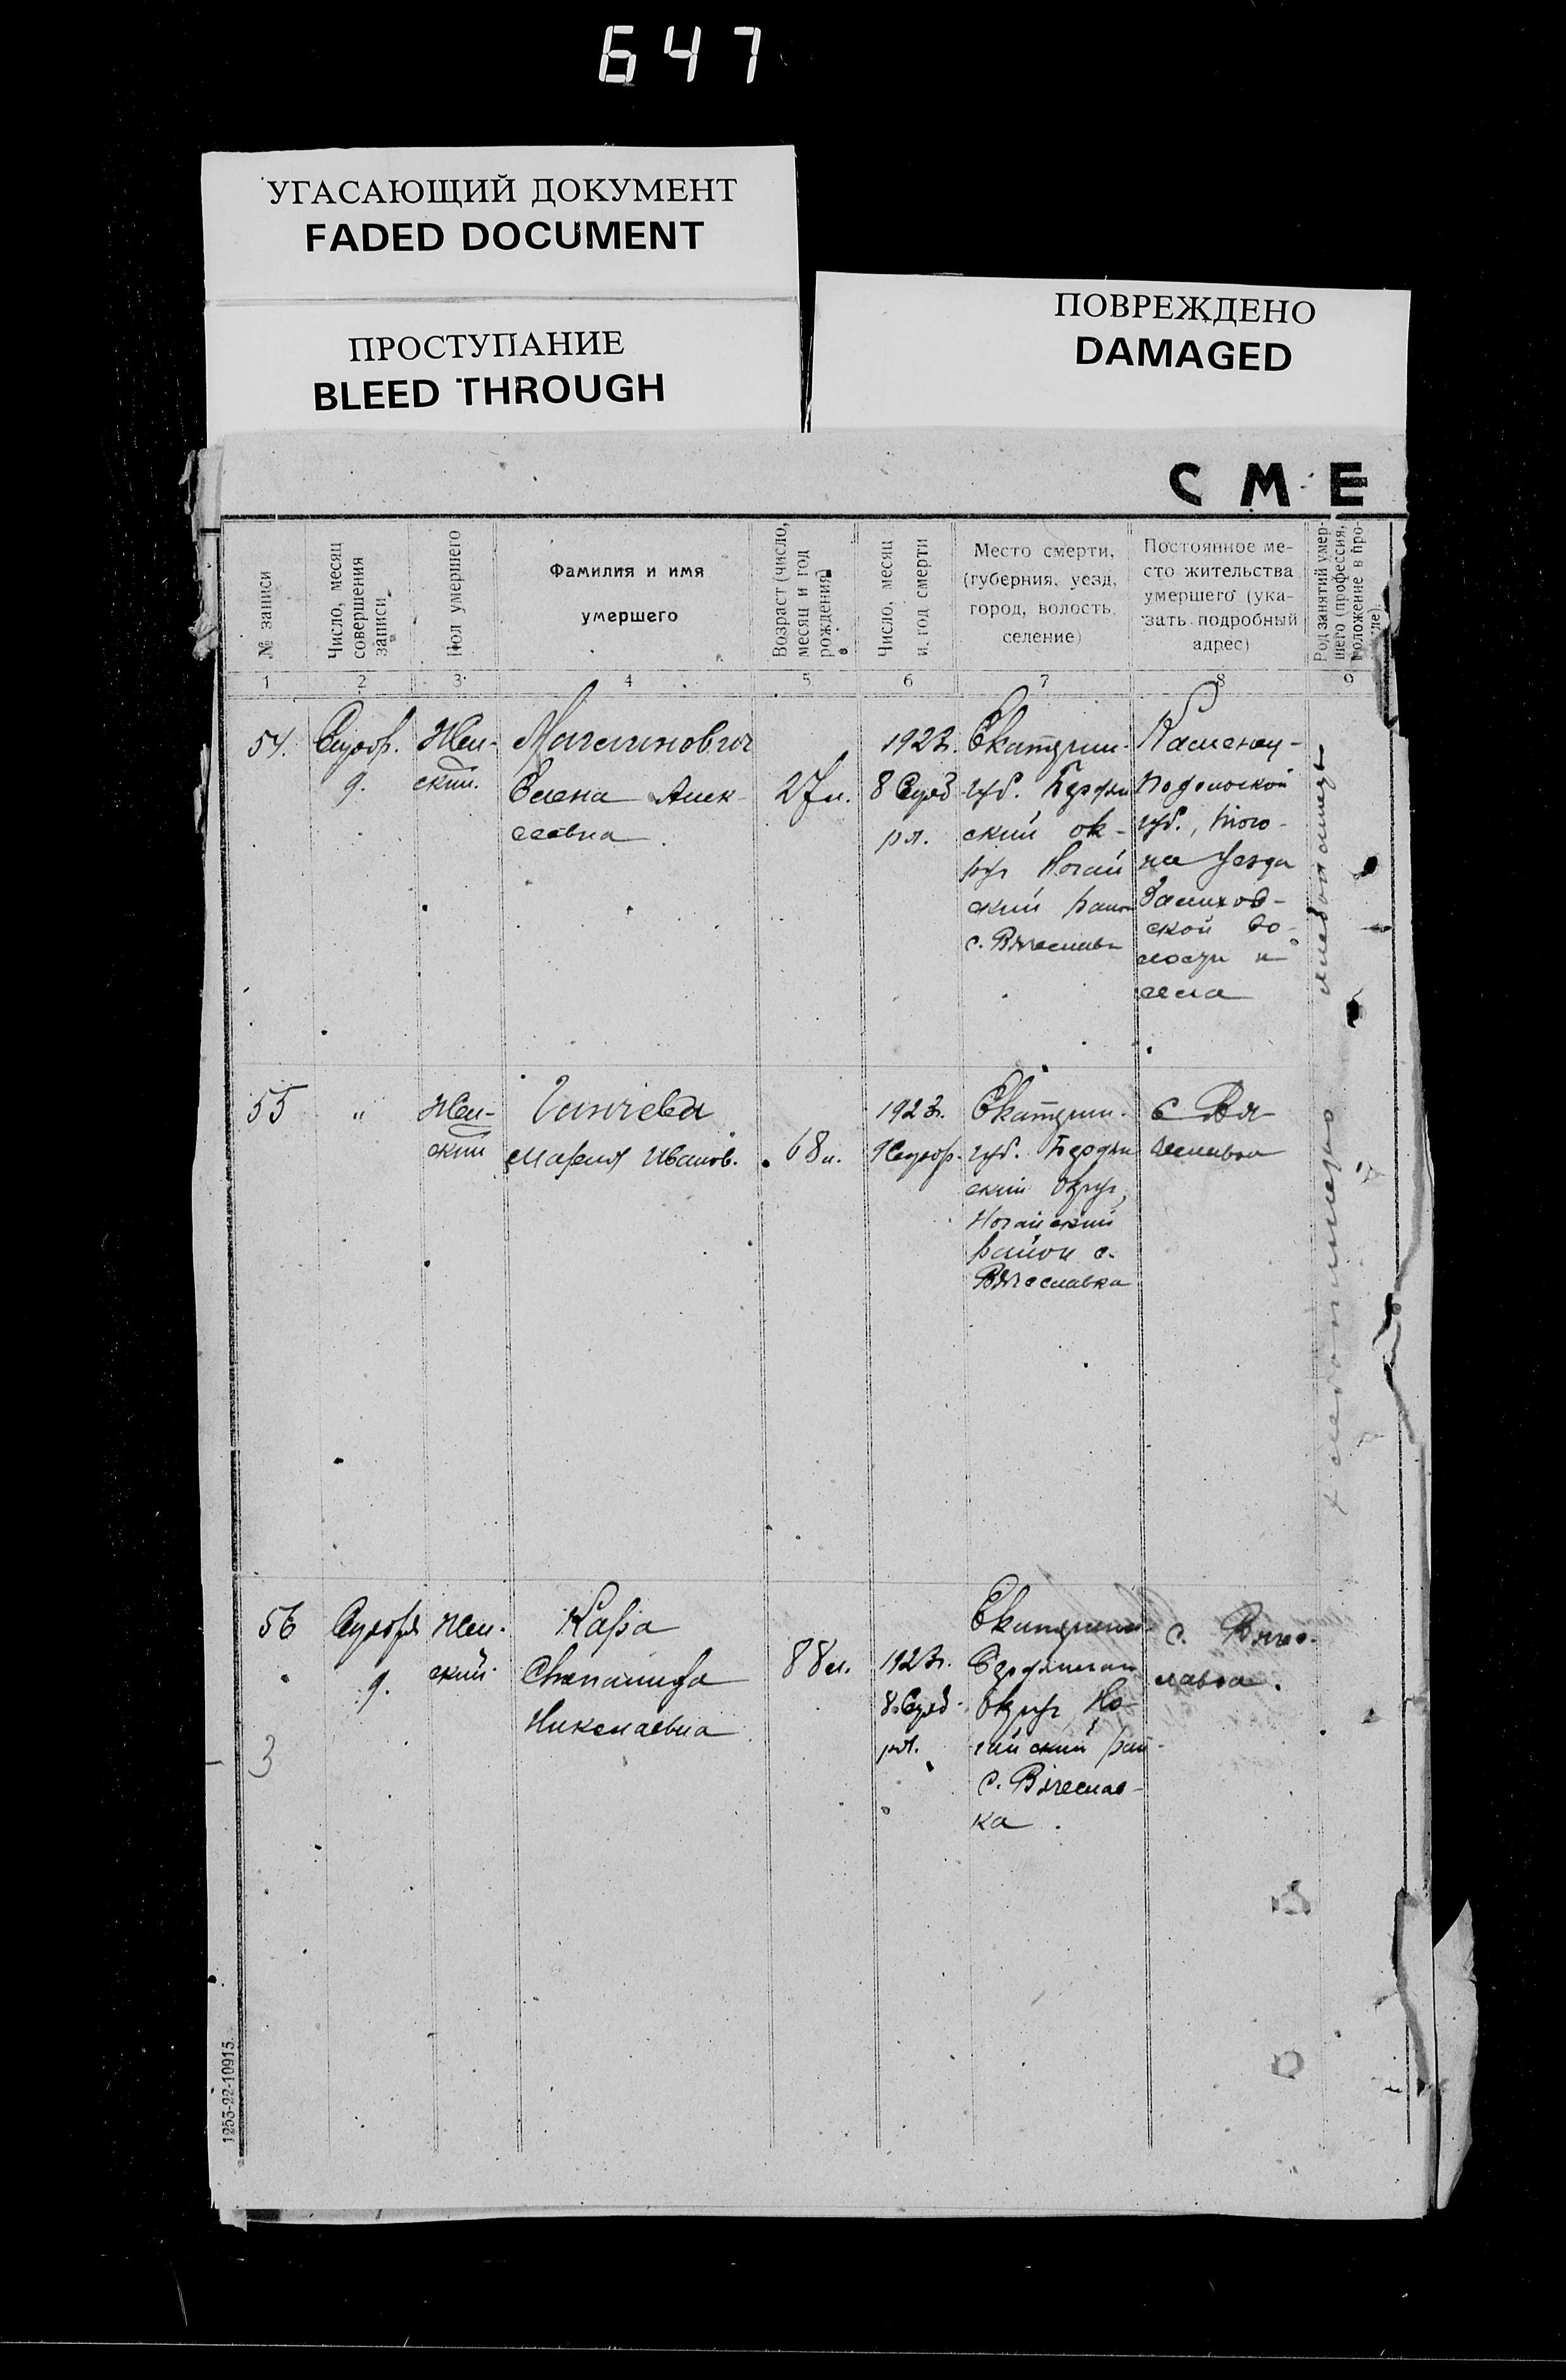 647
УГАСАЮЩИЙ ДОКУМЕНТ
FADED DOCUMENT
ПРОСТУПАНИЕ
BLEED THROUGH
ПОВРЕЖДЕНО
DAMAGED
СМЕ
№ записи
Число, месяц
совершения
записи
Пол умершего
Фамилия и имя
умершего
Возраст (число,
месяц и год
рождения)
Число, месяц
и год смерти
Место смерти,
(губерния, уезд,
город, волость,
селение)
Постоянное ме-
сто жительства
умершего (ука-
зать подробный
адрес)
Род занятий умер-
шего (профессия,
положение в про-
1 2 3 4 5 6 7 8 9
54.
9.
Жен-
ский.
Елена Алек
сеевна
27 л.
1923г.
8
Екатерин.
губ. Бердян
ский ок-
руг Ногай
ский район
с. Вячеславк
Каменец-
Подольской
губ.,
на уезда
ской во-
лости и
села
55
"
Жен-
ский
Мария Иванов.
68 л.
1923г.
Екатерин.
губ. Бердян
ский округ,
Ногайский
район с.
Вячеславка
с Вя
56
9.
Жен.
ский
Кара
Степанида
Николаевна
88 л.
1923г.
8
Округ Но-
гайский рай-
с. Вячеслав-
ка.
с.
лавка.
3
1253-22-10915